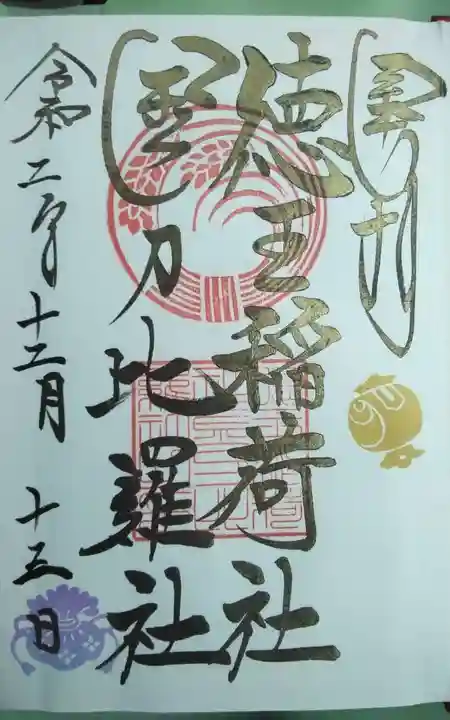 徳王稲荷社
金刀比羅社
令和二年十二月十五日